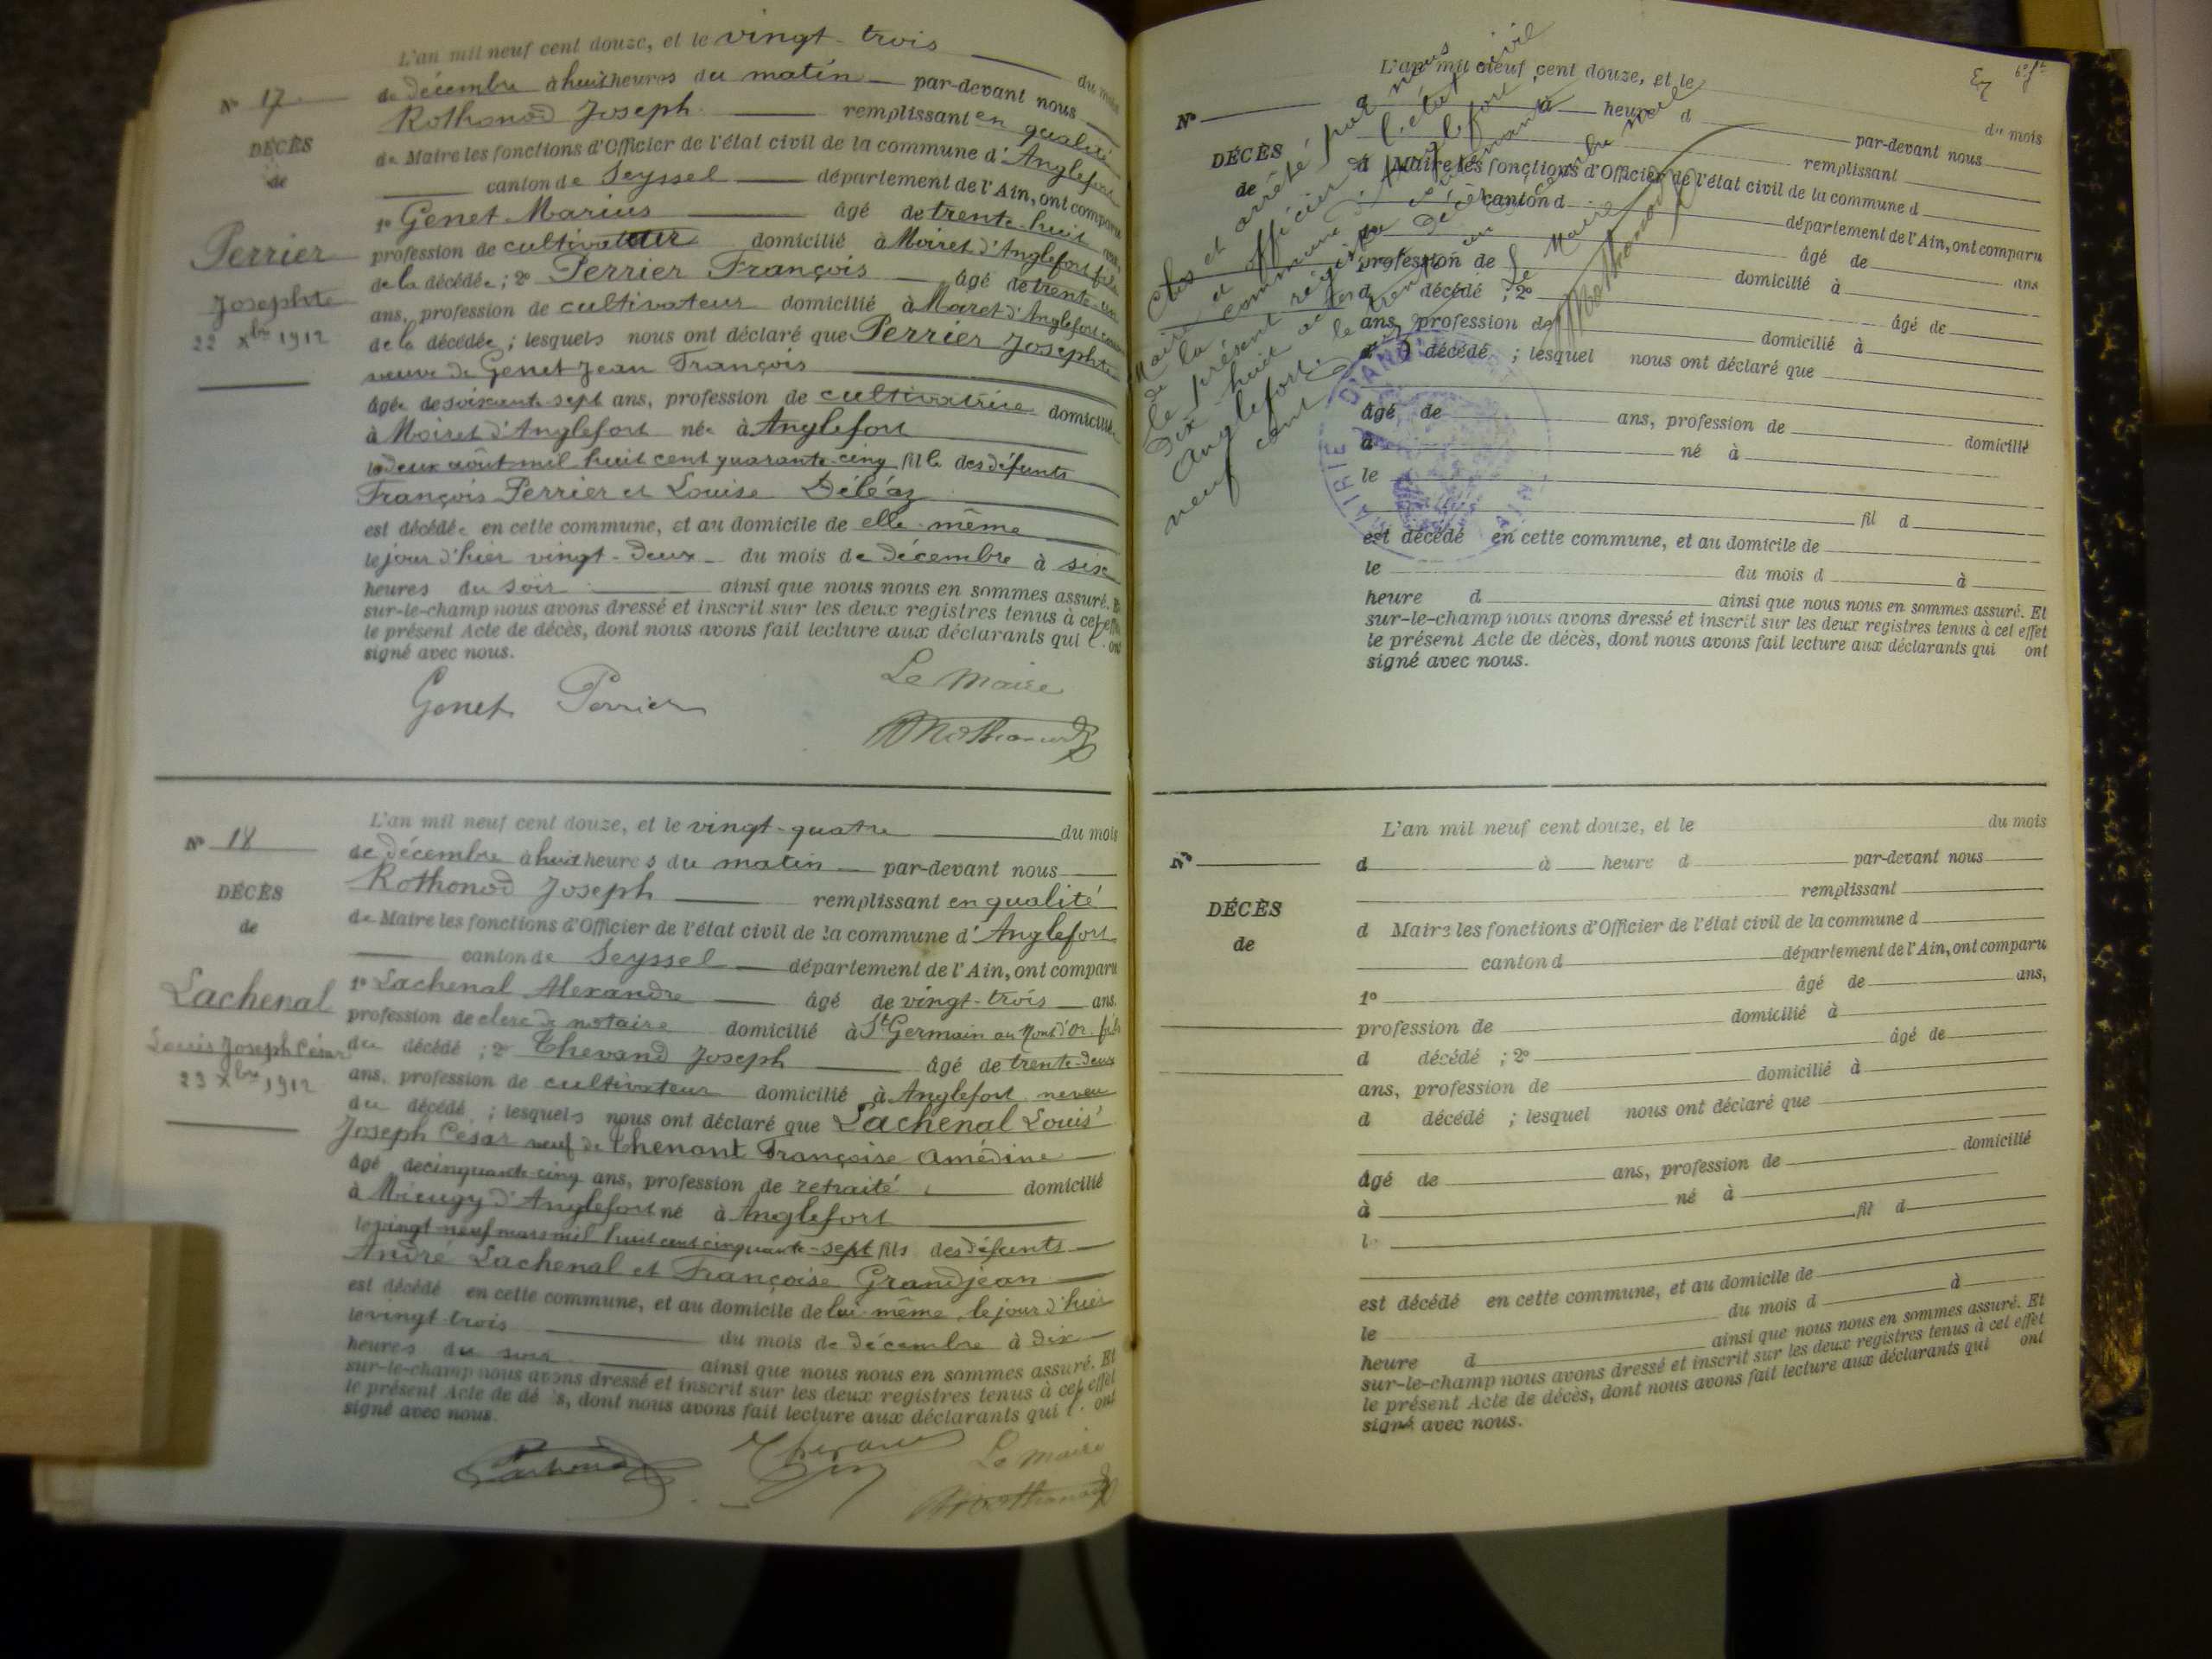 L'an mil neuf cent douze, et le vingt-trois du mois
de décembre à huit heures du matin par-devant nous
Rothonod Joseph remplissant en qualité
de Maire les fonctions d'Officier de l'état civil de la commune d'Anglefort
canton de Seyssel département de l'Ain, ont comparu
1º Genet Marius âgé de trente-huit ans,
profession de cultivateur domicilié à Moiret d'Anglefort fils
de la décédée ; 2º Perrier François âgé de trente-un
ans, profession de cultivateur domicilié à Moiret d'Anglefort
de la décédée ; lesquels nous ont déclaré que Perrier Josephte
veuve de Genet Jean François
âgée de soixante sept ans, profession de cultivatrice domiciliée
à Moiret d'Anglefort née à Anglefort
le deux août mil huit cent quarante-cinq fille des défunts
François Perrier et Louise Déléaz
est décédée en cette commune, et au domicile de elle-même
le jour d'hier vingt-deux du mois de décembre à six
heures du soir ainsi que nous nous en sommes assuré. Et
sur-le-champ nous avons dressé et inscrit sur les deux registres tenus à cet effet
le présent Acte de décès, dont nous avons fait lecture aux déclarants qui l'ont
signé avec nous.
Genet Perrier Le Maire
JRothonod
Nº 17
DÉCÈS
de
Perrier
Josephte
22 Xbre 1912
L'an mil neuf cent douze, et le vingt-quatre du mois
de décembre à huit heures du matin par-devant nous
Rothonod Joseph remplissant en qualité
de Maire les fonctions d'Officier de l'état civil de la commune d'Anglefort
canton de Seyssel département de l'Ain, ont comparu
1º Lachenal Alexandre âgé de vingt-trois ans,
profession de clerc de notaire domicilié à St Germain au Mont d'Or fils
du décédé ; 2º Thevand Joseph âgé de trente-deux
ans, profession de cultivateur domicilié à Anglefort neveu
du décédé ; lesquels nous ont déclaré que Lachenal Louis
Joseph César veuf de Thenant Françoise Amédine
âgé de cinquante-cinq ans, profession de retraité domicilié
à Mieugy d'Anglefort né à Anglefort
le vingt-neuf mars mil huit cent cinquante-sept fils des défunts
André Lachenal et Françoise Grandjean
est décédé en cette commune, et au domicile de lui-même, le jour d'hier
le vingt-trois du mois de décembre à dix
heures du soir ainsi que nous nous en sommes assuré. Et
sur-le-champ nous avons dressé et inscrit sur les deux registres tenus à cet effet
le présent Acte de décès, dont nous avons fait lecture aux déclarants qui l'ont
signé avec nous.
Le Maire
JRothonod
Nº 18
DÉCÈS
de
Lachenal
Louis Joseph César
23 Xbre 1912
L'an mil neuf cent douze, et le du mois
à heure d par-devant nous
remplissant
d Maire les fonctions d'Officier de l'état civil de la commune d
canton d département de l'Ain, ont comparu
âgé de ans
profession de domicilié à
d décédé ; 2º âgé de
ans, profession de domicilié à
d décédé ; lesquel nous ont déclaré que
âgé de ans, profession de domicilié
à né à
le
fil d
est décédé en cette commune, et au domicile de
le du mois d à
heure d ainsi que nous nous en sommes assuré. Et
sur-le-champ nous avons dressé et inscrit sur les deux registres tenus à cet effet
le présent Acte de décès, dont nous avons fait lecture aux déclarants qui ont
signé avec nous.
Nº
DÉCÈS
de
Clos et arrêté par nous
Maire et officier de l'état civil
de la commune d'Anglefort
le présent registre contenant
dix-huit actes de décès
Anglefort le trente un décembre mil
neuf cent douze
Le Maire
JRothonod
MAIRIE D'ANGLEFORT
AIN
L'an mil neuf cent douze, et le du mois
d à heure d par-devant nous
remplissant
d Maire les fonctions d'Officier de l'état civil de la commune d
canton d département de l'Ain, ont comparu
1º âgé de ans,
profession de domicilié à
d décédé ; 2º âgé de
ans, profession de domicilié à
d décédé ; lesquel nous ont déclaré que
âgé de ans, profession de domicilié
à né à
l fil d
est décédé en cette commune, et au domicile de
le du mois d à
heure d ainsi que nous nous en sommes assuré. Et
sur-le-champ nous avons dressé et inscrit sur les deux registres tenus à cet effet
le présent Acte de décès, dont nous avons fait lecture aux déclarants qui ont
signé avec nous.
Nº
DÉCÈS
de